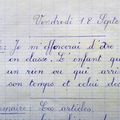 Vendredi 12 Septe
: Je m'efforcerai d'être
en classe. L'enfant qu
un rien ou qui arri
son temps et celui des
: Les articles.